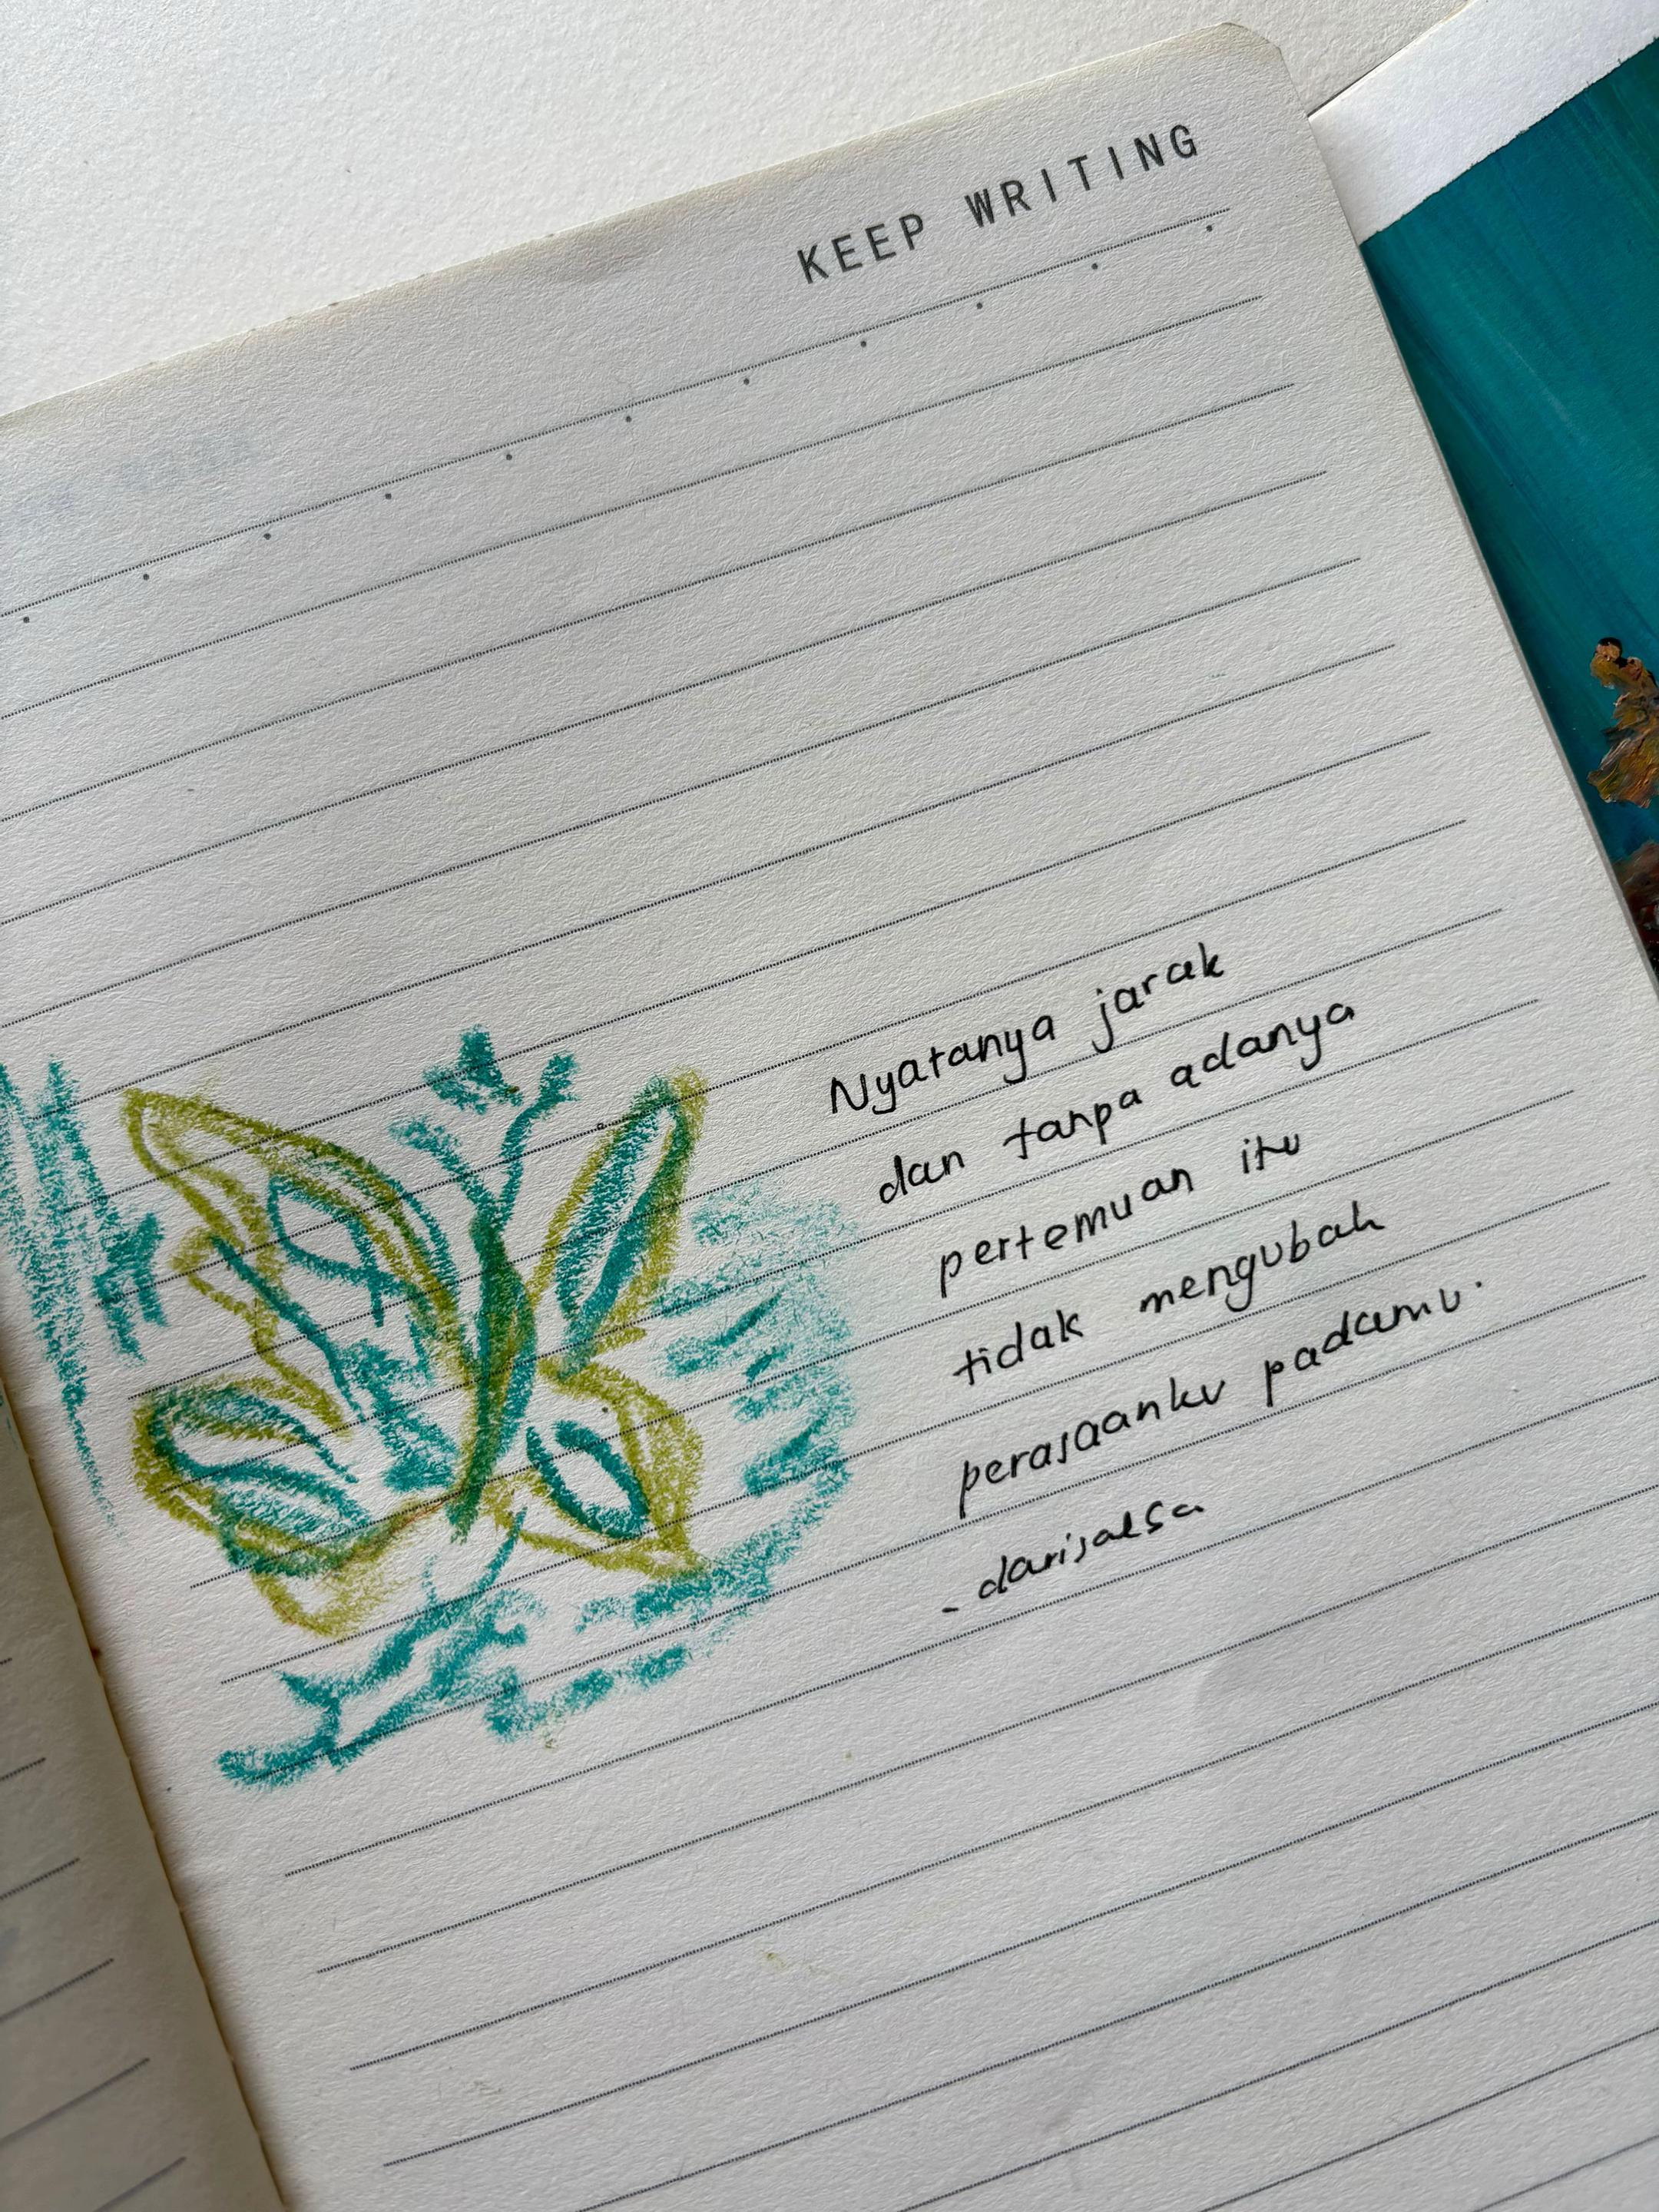 KEEP WRITING
Nyatanya jarak
dan tanpa adanya
pertemuan itu
tidak mengubah
perasaanku padamu.
- darisalsa